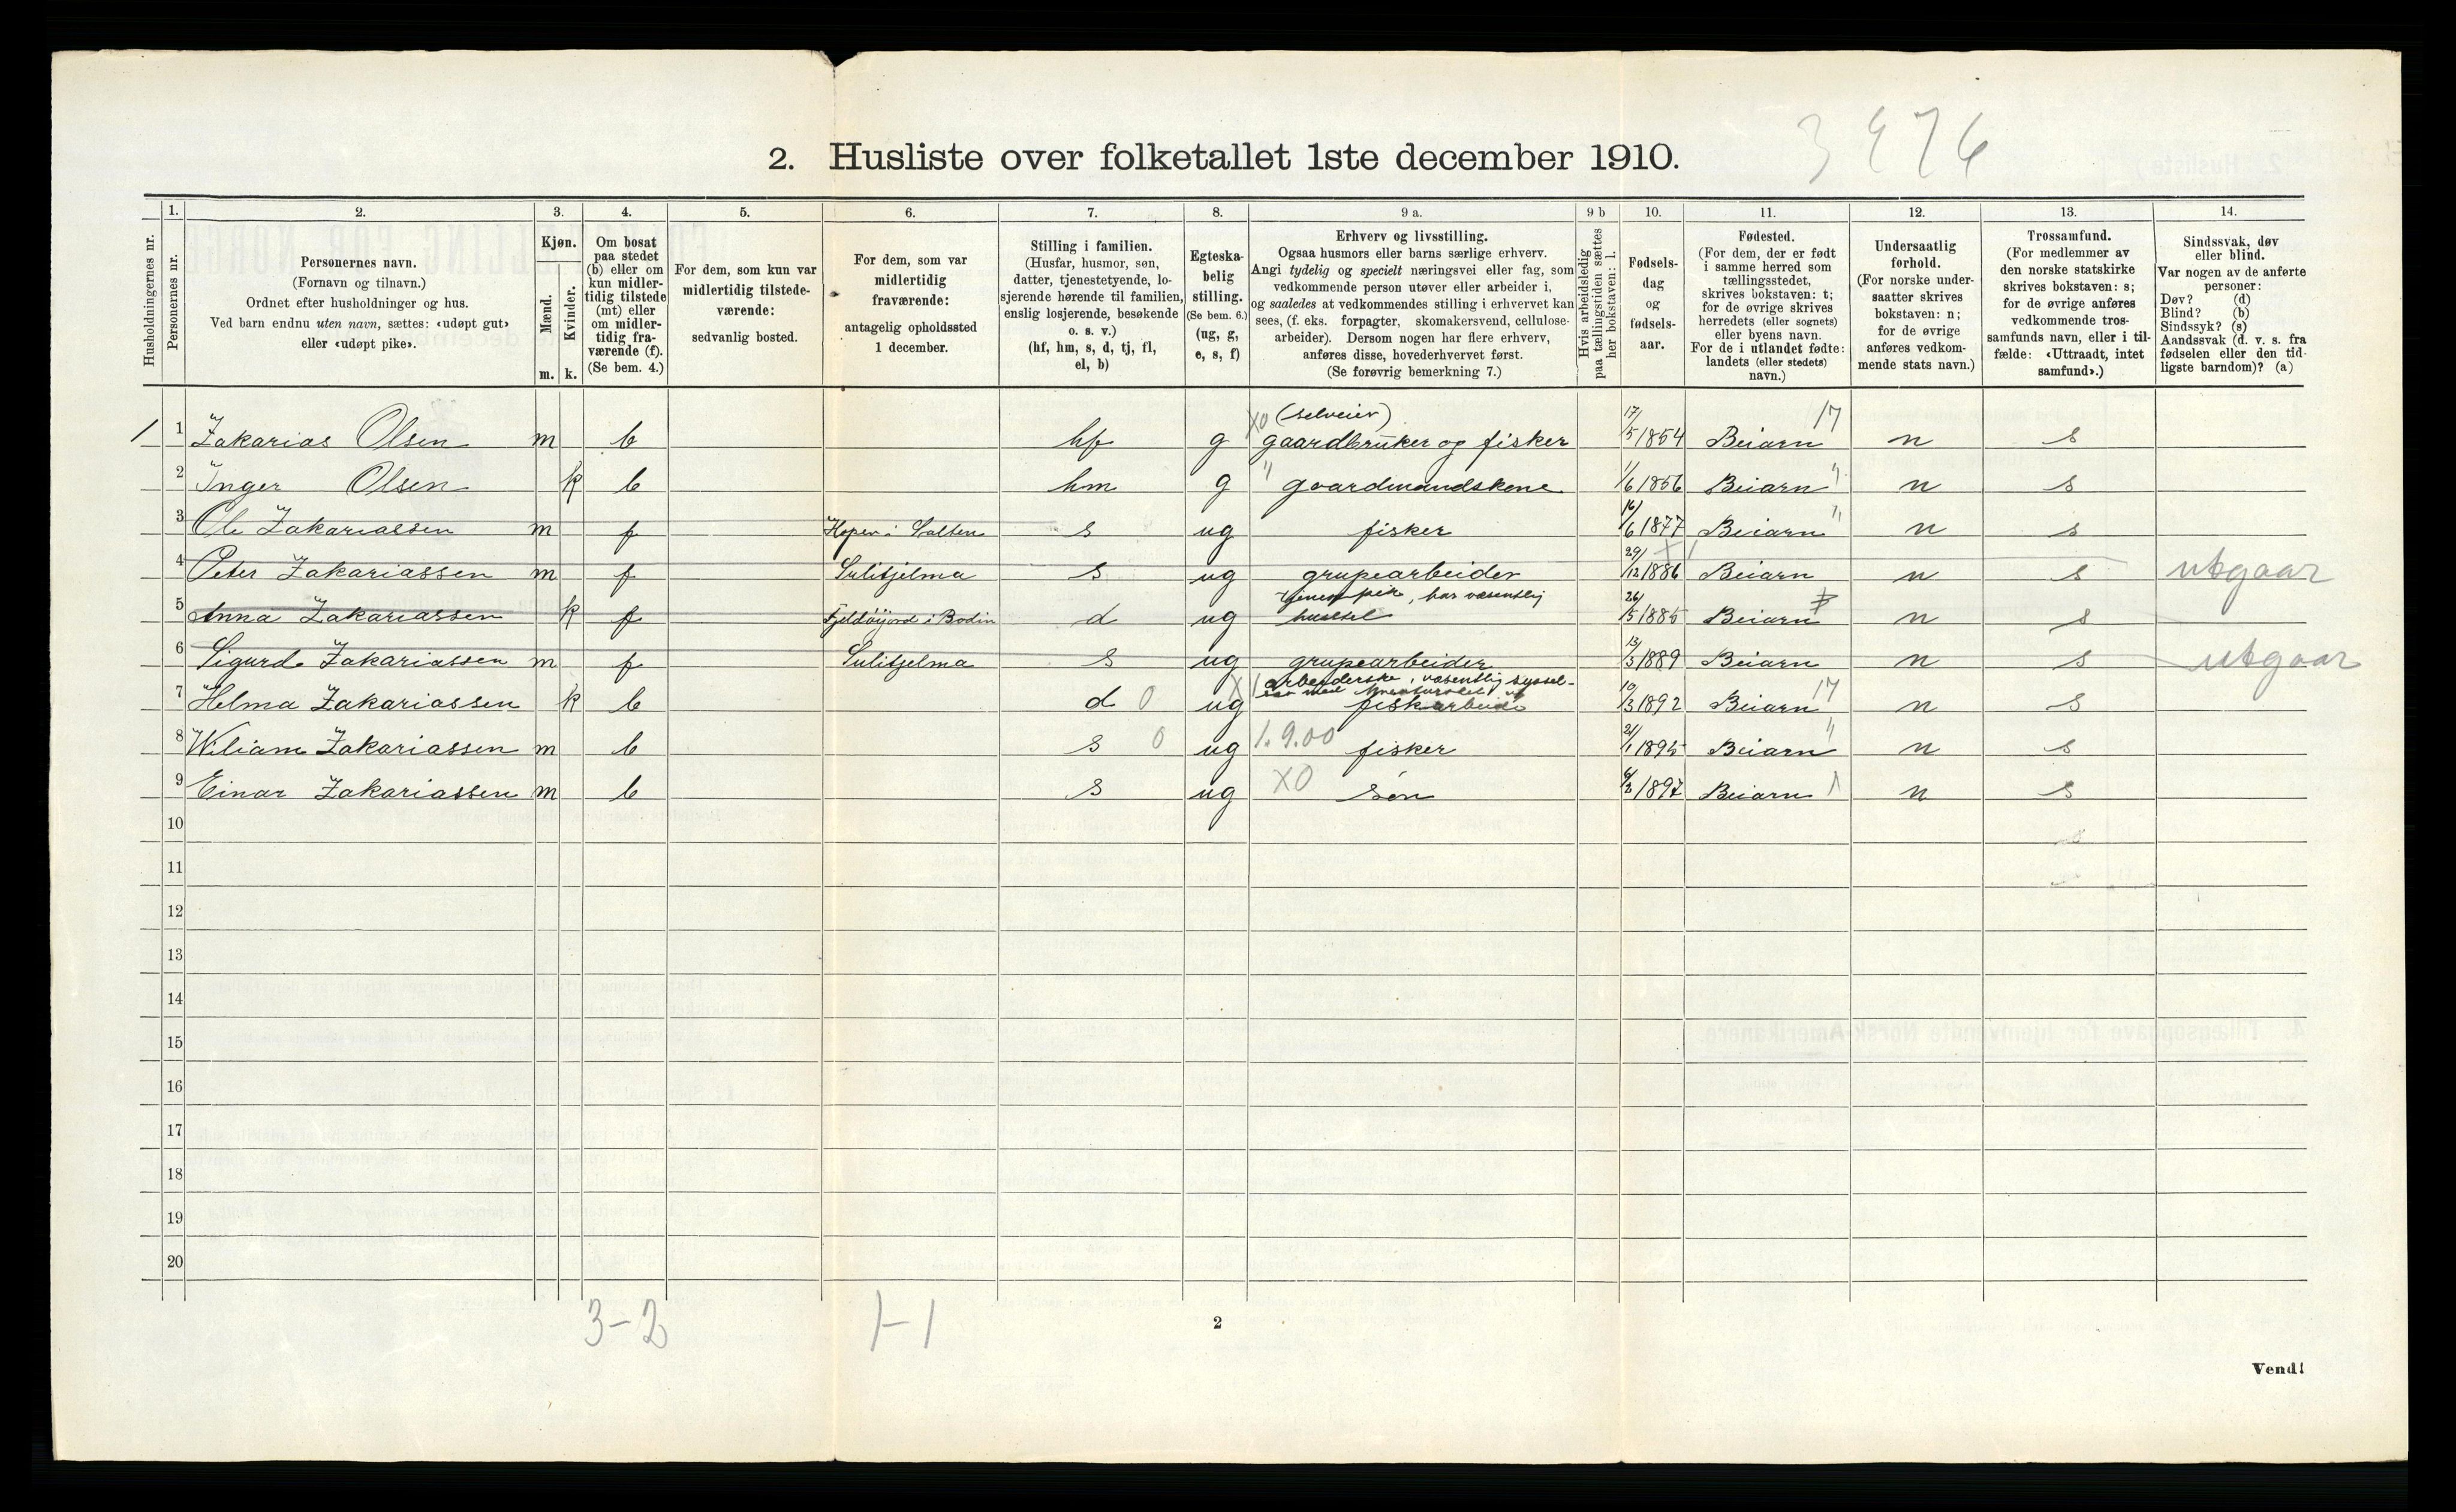 3976
2. Husliste over folketallet 1ste december 1910.
Husholdningernes nr.
1.
Personernes nr.
2.
Personernes navn.
(Fornavn og tilnavn.)
Ordnet efter husholdninger og hus.
Ved barn endnu uten navn, sættes: «udøpt gut»
eller «udøpt pike».
3.
Kjøn.
Mænd.
Kvinder.
m. k.
4.
Om bosat
paa stedet
(b) eller om
kun midler-
tidig tilstede
(mt) eller
om midler-
tidig fra-
værende (f).
(Se bem. 4.)
5.
For dem, som kun var
midlertidig tilstede-
værende:
sedvanlig bosted.
6.
For dem, som var
midlertidig
fraværende:
antagelig opholdssted
1 december.
7.
Stilling i familien.
(Husfar, husmor, søn,
datter, tjenestetyende, lo-
sjerende hørende til familien,
enslig losjerende, besøkende
o. s. v.)
(hf, hm, s, d, tj, fl,
el, b)
8.
Egteska-
belig
stilling.
(Se bem. 6.)
(ug, g,
e, s, f)
9 a.
Erhverv og livsstilling.
Ogsaa husmors eller barns særlige erhverv.
Angi tydelig og specielt næringsvei eller fag, som
vedkommende person utøver eller arbeider i,
og saaledes at vedkommendes stilling i erhvervet kan
sees, (f. eks. forpagter, skomakersvend, cellulose-
arbeider). Dersom nogen har flere erhverv,
anføres disse, hovederhvervet først.
(Se forøvrig bemerkning 7.)
9 b
Hvis arbeidsledig
paa tællingstiden sættes
her bokstaven: l.
10.
Fødsels-
dag
og
fødsels-
aar.
11.
Fødested.
(For dem, der er født
i samme herred som
tællingsstedet,
skrives bokstaven: t;
for de øvrige skrives
herredets (eller sognets)
eller byens navn.
For de i utlandet fødte:
landets (eller stedets)
navn.)
12.
Undersaatlig
forhold.
(For norske under-
saatter skrives
bokstaven: n;
for de øvrige
anføres vedkom-
mende stats navn.)
13.
Trossamfund.
(For medlemmer av
den norske statskirke
skrives bokstaven: s;
for de øvrige anføres
vedkommende tros-
samfunds navn, eller i til-
fælde: «Uttraadt, intet
samfund».)
14.
Sindssvak, døv
eller blind.
Var nogen av de anførte
personer:
Døv? (d)
Blind? (b)
Sindssyk? (s)
Aandssvak (d. v. s. fra
fødselen eller den tid-
ligste barndom)? (a)
X0 (selveier) 17
1 1 Zakarias Olsen m b hf g gaardbruker og fisker 17/5 1854 Beiarn n s
2 Inger Olsen k b hm g " gaardmandskone 1/6 1856 Beiarn " n s
3 Ole Zakariassen m f Hopen i Salten s ug fisker 16/6 1877 Beiarn " n s
4 Peter Zakariassen m f Sulitjelma s ug grupearbeider 29/12 1886 Beiarn n s utgaar
tjenestpike, har væsentlig
5 Anna Zakariassen k f Fjeldøijord i Bodin d ug husstel 26/5 1885 Beiarn n s
6 Sigurd Zakariassen m f Sulitjelma s ug grupearbeider 13/3 1889 Beiarn n s utgaar
arbeiderske, væsentlig syssel-
7 Helma Zakariassen k b d 0 ug fiskarbeide 10/3 1892 Beiarn 17 n s
8 Wiliam Zakariassen m b s 0 ug 1.9.00 fisker 21/1 1895 Beiarn " n s
9 Einar Zakariassen m b s ug X0 søn 6/2 1897 Beiarn n s
10
11
12
13
14
15
16
17
18
19
20
3-2 1-1
2
Vend!